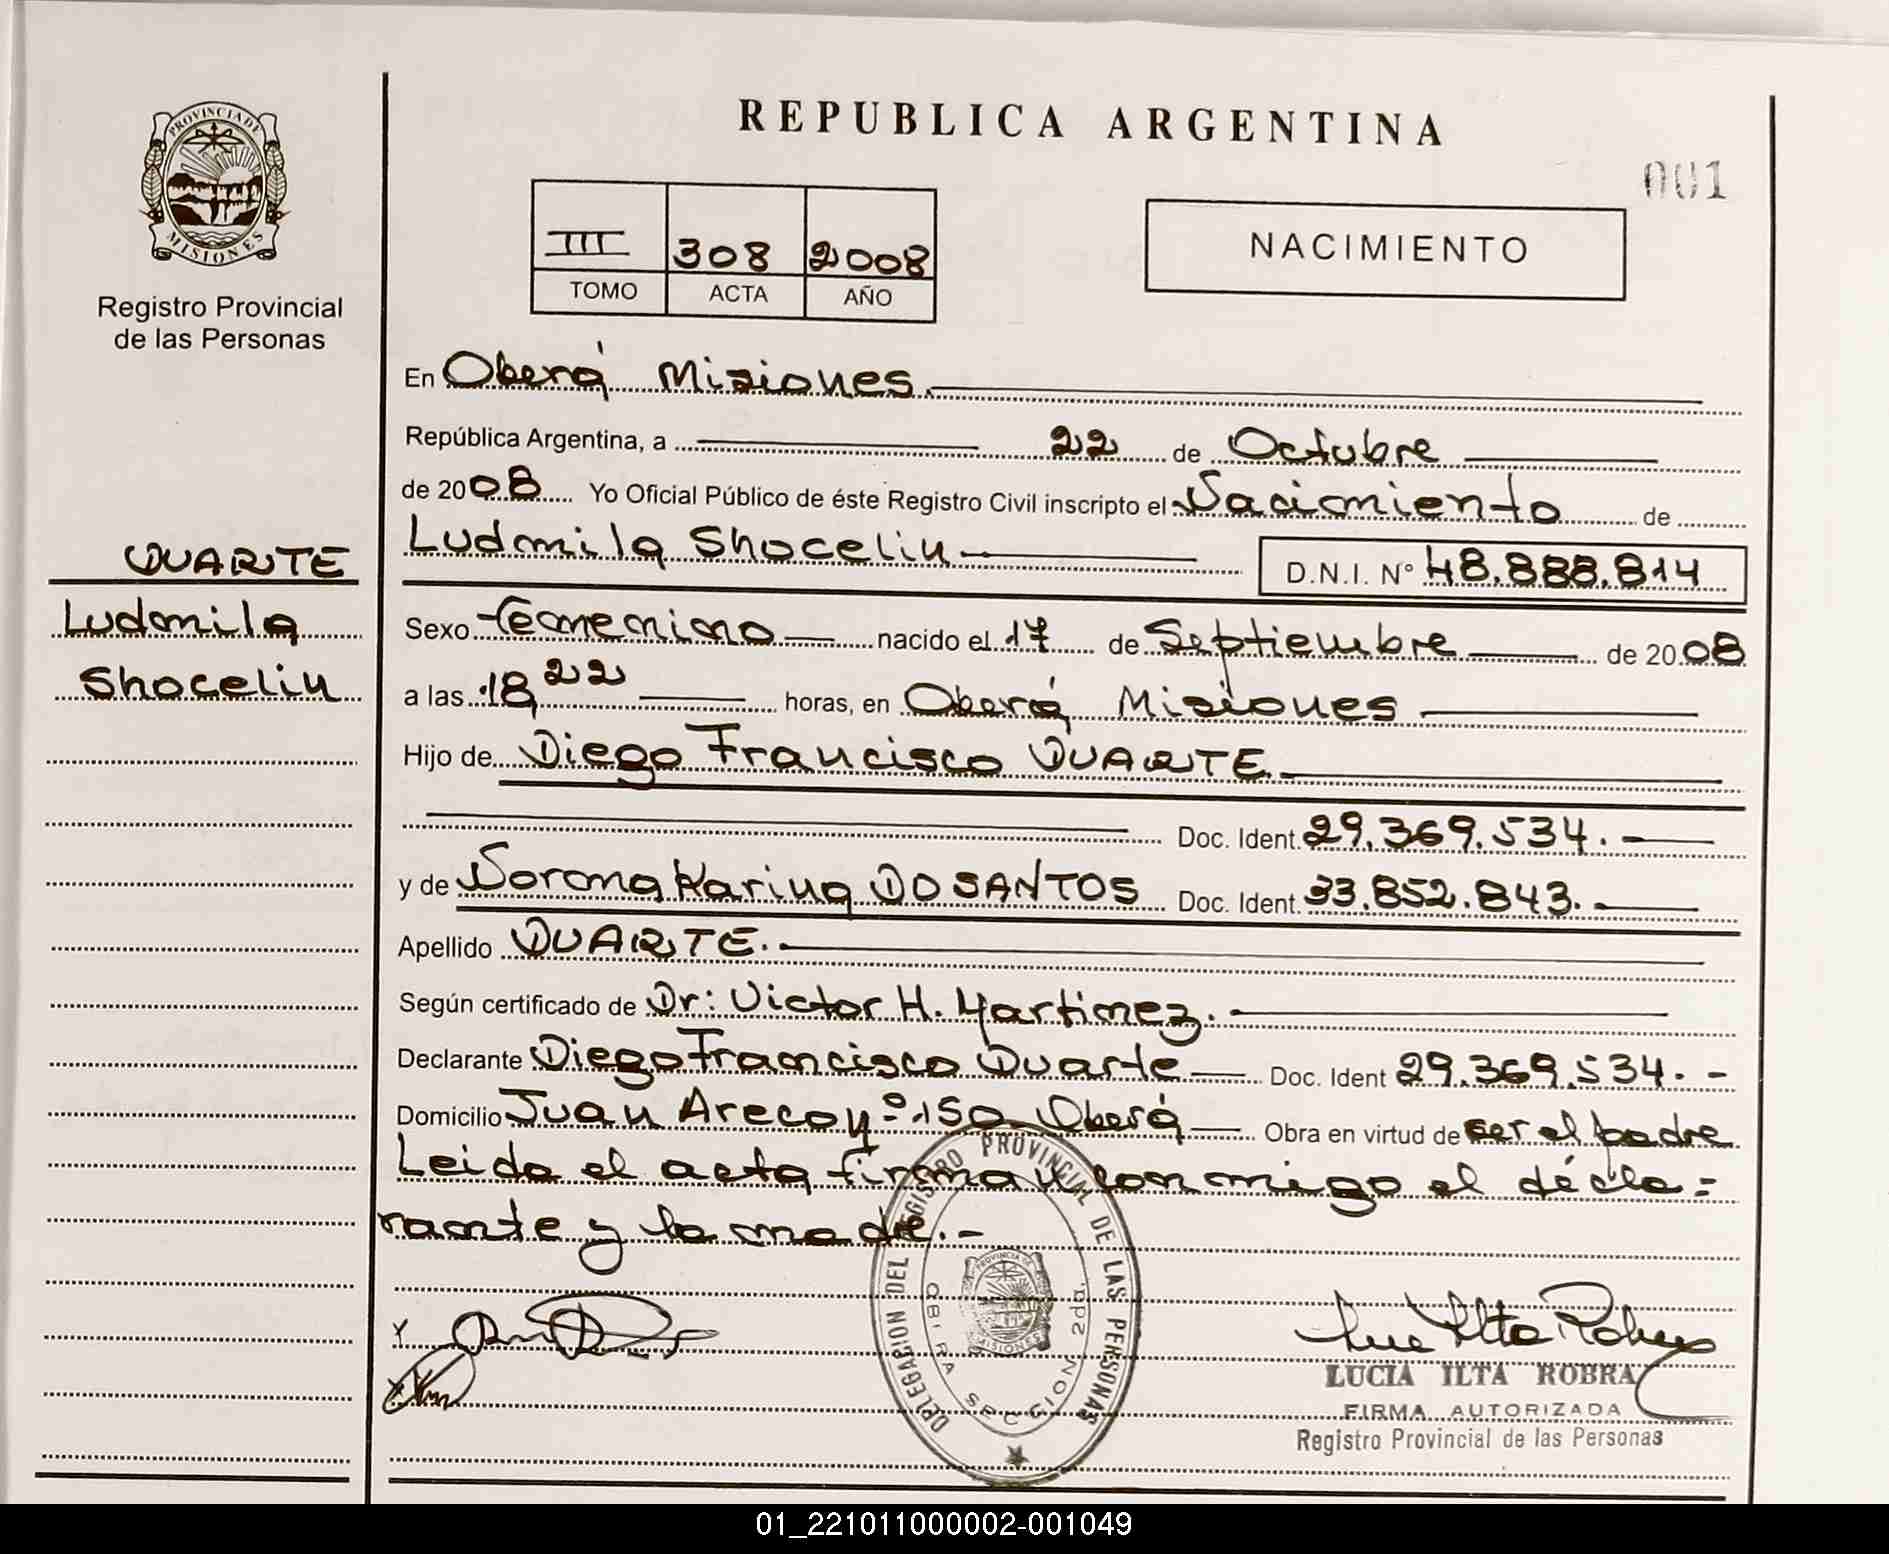 REPUBLICA ARGENTINA
001
PROVINCIA DE
MISIONES
Registro Provincial
de las Personas
III 308 2008
TOMO ACTA AÑO
NACIMIENTO
En Oberá Misiones.
República Argentina, a 22 de Octubre
de 2008 Yo Oficial Público de éste Registro Civil inscripto el Nacimiento de
Ludmila Shocelin D.N.I. N° 48.888.814
DUARTE
Ludmila
Shocelin
Sexo femenino nacido el 17 de Septiembre de 2008
a las 18 22 horas, en Oberá Misiones
Hijo de Diego Francisco DUARTE
Doc. Ident. 29.369.534.-
y de Norma Karina DO SANTOS Doc. Ident. 33.852.843.-
Apellido DUARTE.
Según certificado de Dr: Victor H. Martinez.
Declarante Diego Francisco Duarte Doc. Ident 29.369.534.-
Domicilio Juan Areco nº 150 Oberá Obra en virtud de ser el padre
Leida el acta firman conmigo el décla=
rante y la madre.-
DELEGACION DEL REGISTRO PROVINCIAL DE LAS PERSONAS
SECCION
LUCIA ILTA ROBRA
FIRMA AUTORIZADA
Registro Provincial de las Personas
01_221011000002-001049